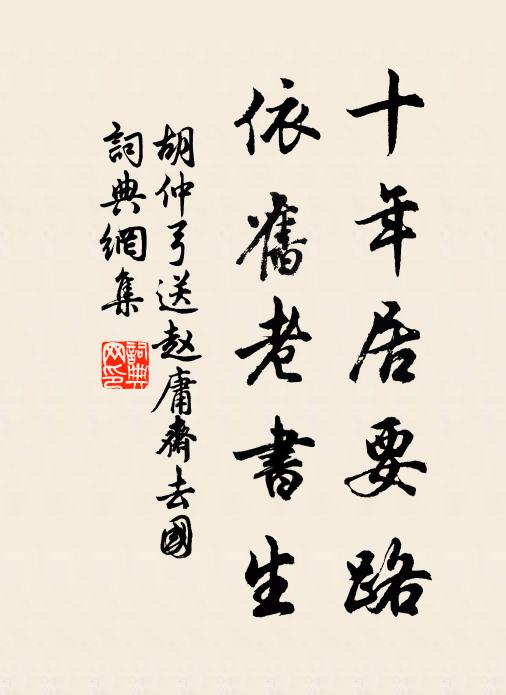 十年居要路
依舊老書生
胡仲弓送赵庸齊去國
詞典網集
詞典
网印